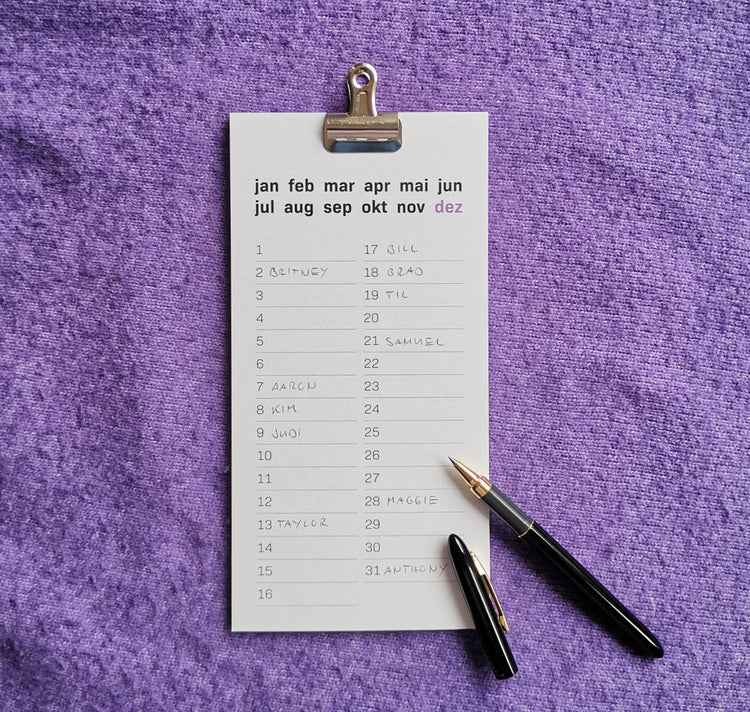 jan feb mar apr mai jun
jul aug sep okt nov dez
1
2 BRITNEY
3
4
5
6
7 AARON
8 KIM
9 JUDI
10
11
12
13 TAYLOR
14
15
16
17 BILL
18 BRAD
19 TIL
20
21 SAMUEL
22
23
24
25
26
27
28 MAGGIE
29
30
31 ANTHONY